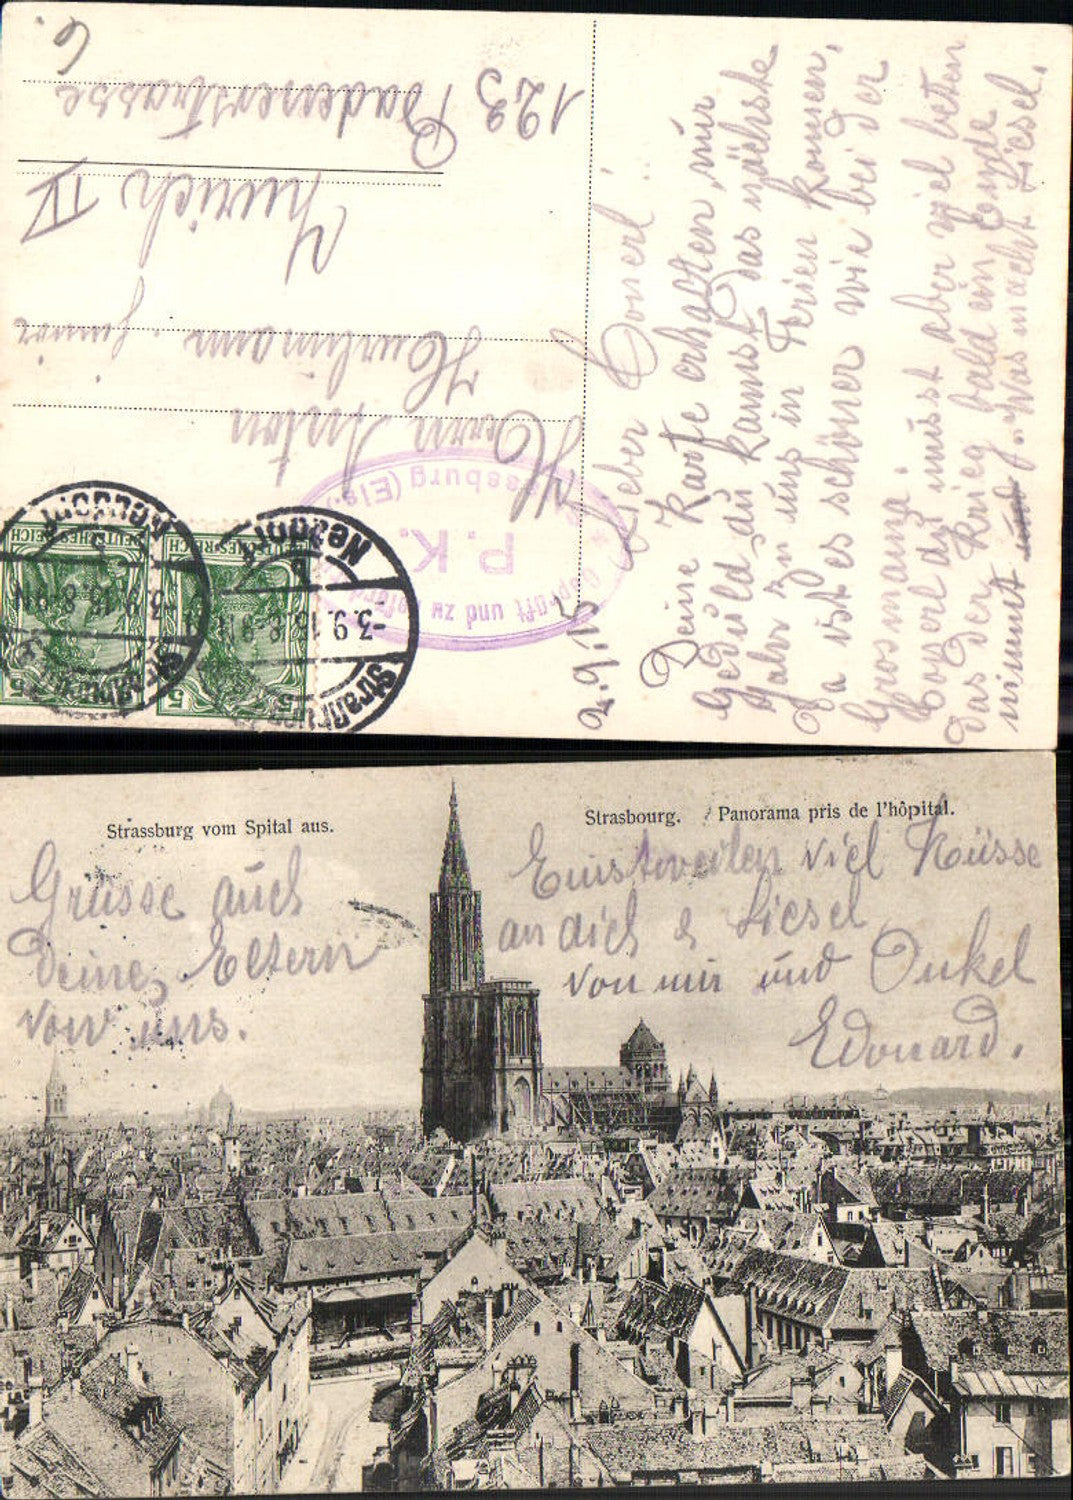 Herrn Anton
Hürlimann. junior
Zürich IV
123 Badenerstrasse
6.
DEUTSCHES REICH
5
DEUTSCHES REICH
5
Straßburg
-3.9.15.8-9N
Neudorf
Straßburg
-3.9.15.8-9N
Neudorf
Geprüft und zu befördern
P. K.
Strassburg (Els.)
2.9.15
Lieber Tonerl!
Deine Karte erhalten, nur
Geduld du kannst das nächste
Jahr zu uns in Ferien kommen,
Da ist es schöner wie bei der
Grosmama
Tonerl du musst aber viel beten
das der Krieg bald ein Ende
nimmt. Was macht Liesel.
Strassburg vom Spital aus.
Strasbourg. Panorama pris de l'hôpital.
Einstweilen viel Küsse
an dich & Liesel
von mir und Onkel
Edouard.
Grüsse auch
Deine Eltern
von uns.